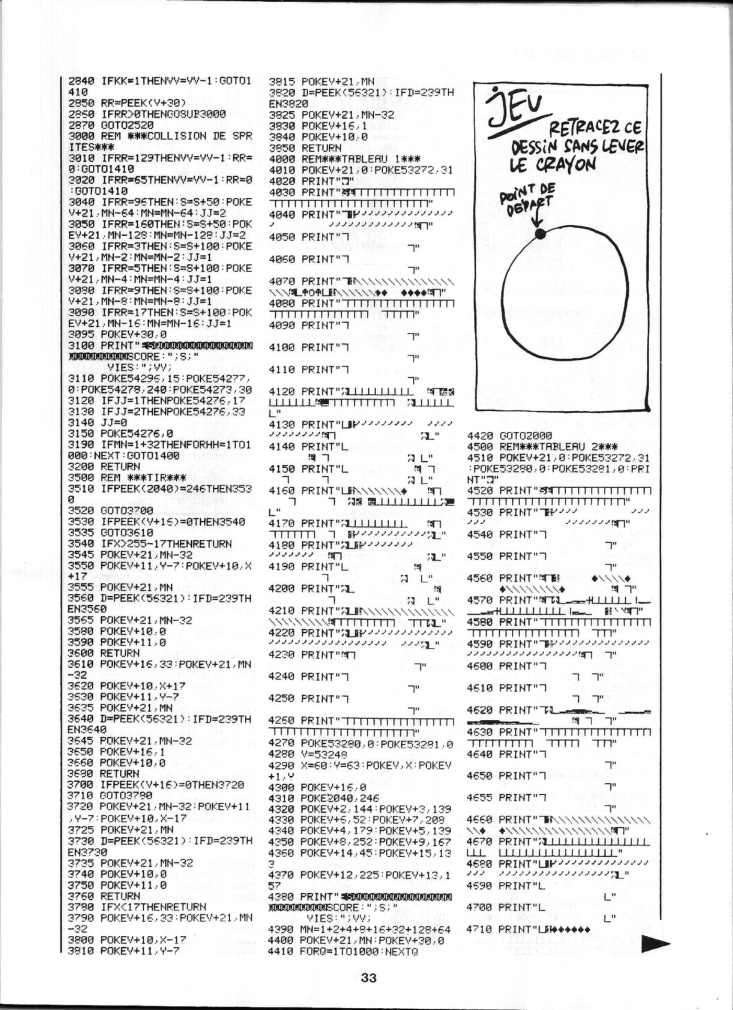 2840 IFKK=1THENVV=VV-1:GOTO1
410
2850 RR=PEEK(V+30)
2860 IFRR>0THENGOSUB3000
2870 GOTO2520
3000 REM ***COLLISION DE SPR
ITES***
3010 IFRR=129THENVV=VV-1:RR=
0:GOTO1410
3020 IFRR=65THENVV=VV-1:RR=0
:GOTO1410
3040 IFRR=96THEN:S=S+50:POKE
V+21,MN-64:MN=MN-64:JJ=2
3050 IFRR=160THEN:S=S+50:POK
EV+21,MN-128:MN=MN-128:JJ=2
3060 IFRR=3THEN:S=S+100:POKE
V+21,MN-2:MN=MN-2:JJ=1
3070 IFRR=5THEN:S=S+100:POKE
V+21,MN-4:MN=MN-4:JJ=1
3080 IFRR=9THEN:S=S+100:POKE
V+21,MN-8:MN=MN-8:JJ=1
3090 IFRR=17THEN:S=S+100:POK
EV+21,MN-16:MN=MN-16:JJ=1
3095 POKEV+30,0
3100 PRINT"
SCORE:";S;"
VIES:";VV;
3110 POKE54296,15:POKE54277,
0:POKE54278,240:POKE54273,30
3120 IFJJ=1THENPOKE54276,17
3130 IFJJ=2THENPOKE54276,33
3140 JJ=0
3150 POKE54276,0
3190 IFMN=1+32THENFORHH=1TO1
000:NEXT:GOTO1400
3200 RETURN
3500 REM ***TIR***
3510 IFPEEK(2040)=246THEN353
0
3520 GOTO3700
3530 IFPEEK(V+16)=0THEN3540
3535 GOTO3610
3540 IFX>255-17THENRETURN
3545 POKEV+21,MN-32
3550 POKEV+11,Y-7:POKEV+10,X
+17
3555 POKEV+21,MN
3560 D=PEEK(56321):IFD=239TH
EN3560
3565 POKEV+21,MN-32
3580 POKEV+10,0
3590 POKEV+11,0
3600 RETURN
3610 POKEV+16,33:POKEV+21,MN
-32
3620 POKEV+10,X+17
3630 POKEV+11,Y-7
3635 POKEV+21,MN
3640 D=PEEK(56321):IFD=239TH
EN3640
3645 POKEV+21,MN-32
3650 POKEV+16,1
3660 POKEV+10,0
3680 RETURN
3700 IFPEEK(V+16)=0THEN3720
3710 GOTO3780
3720 POKEV+21,MN-32:POKEV+11
,Y-7:POKEV+10,X-17
3725 POKEV+21,MN
3730 D=PEEK(56321):IFD=239TH
EN3730
3735 POKEV+21,MN-32
3740 POKEV+10,0
3750 POKEV+11,0
3760 RETURN
3780 IFX<17THENRETURN
3790 POKEV+16,33:POKEV+21,MN
-32
3800 POKEV+10,X-17
3810 POKEV+11,Y-7
3815 POKEV+21,MN
3820 D=PEEK(56321):IFD=239TH
EN3820
3825 POKEV+21,MN-32
3830 POKEV+16,1
3840 POKEV+10,0
3850 RETURN
4000 REM***TABLEAU 1***
4010 POKEV+21,0:POKE53272,31
4020 PRINT"
4030 PRINT"
4040 PRINT"
4050 PRINT"
4060 PRINT"
4070 PRINT"
4080 PRINT"
4090 PRINT"
4100 PRINT"
4110 PRINT"
4120 PRINT"
4130 PRINT"
4140 PRINT"L
4150 PRINT"L
4160 PRINT"
4170 PRINT"
4180 PRINT"
4190 PRINT"L
4200 PRINT"
4210 PRINT"
4220 PRINT"
4230 PRINT"
4240 PRINT"
4250 PRINT"
4260 PRINT"
4270 POKE53280,0:POKE53281,0
4280 V=53248
4290 X=60:Y=63:POKEV,X:POKEV
+1,Y
4300 POKEV+16,0
4310 POKE2040,246
4320 POKEV+2,144:POKEV+3,139
4330 POKEV+6,52:POKEV+7,208
4340 POKEV+4,179:POKEV+5,139
4350 POKEV+8,252:POKEV+9,167
4360 POKEV+14,45:POKEV+15,13
3
4370 POKEV+12,225:POKEV+13,1
57
4380 PRINT"
SCORE:";S;"
VIES:";VV;
4390 MN=1+2+4+8+16+32+128+64
4400 POKEV+21,MN:POKEV+30,0
4410 FORQ=1TO1000:NEXTQ
JEU
RETRACEZ CE
DESSIN SANS LEVER
LE CRAYON
POINT DE
DÉPART
4420 GOTO2000
4500 REM***TABLEAU 2***
4510 POKEV+21,0:POKE53272,31
:POKE53280,0:POKE53281,0:PRI
NT"
4520 PRINT"
4530 PRINT"
4540 PRINT"
4550 PRINT"
4560 PRINT"
4570 PRINT"
4580 PRINT"
4590 PRINT"
4600 PRINT"
4610 PRINT"
4620 PRINT"
4630 PRINT"
4640 PRINT"
4650 PRINT"
4655 PRINT"
4660 PRINT"
4670 PRINT"
4680 PRINT"
4690 PRINT"L
L"
4700 PRINT"L
L"
4710 PRINT"
33